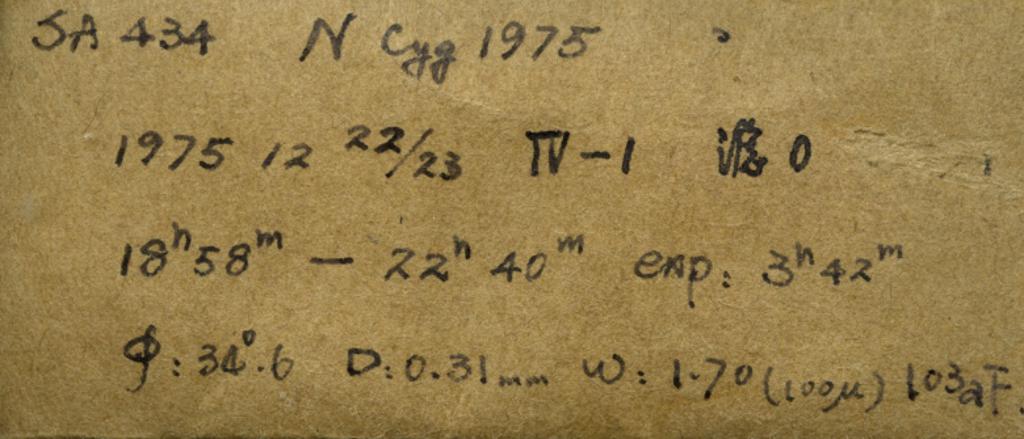 SA 434 N Cyg 1975
1975 12 22/23 IV-1 滤 0
18ʰ58ᵐ — 22ʰ 40ᵐ exp: 3ʰ42ᵐ
φ: 34°.6 D: 0.31mm W: 1.70 (100μ) 103aF